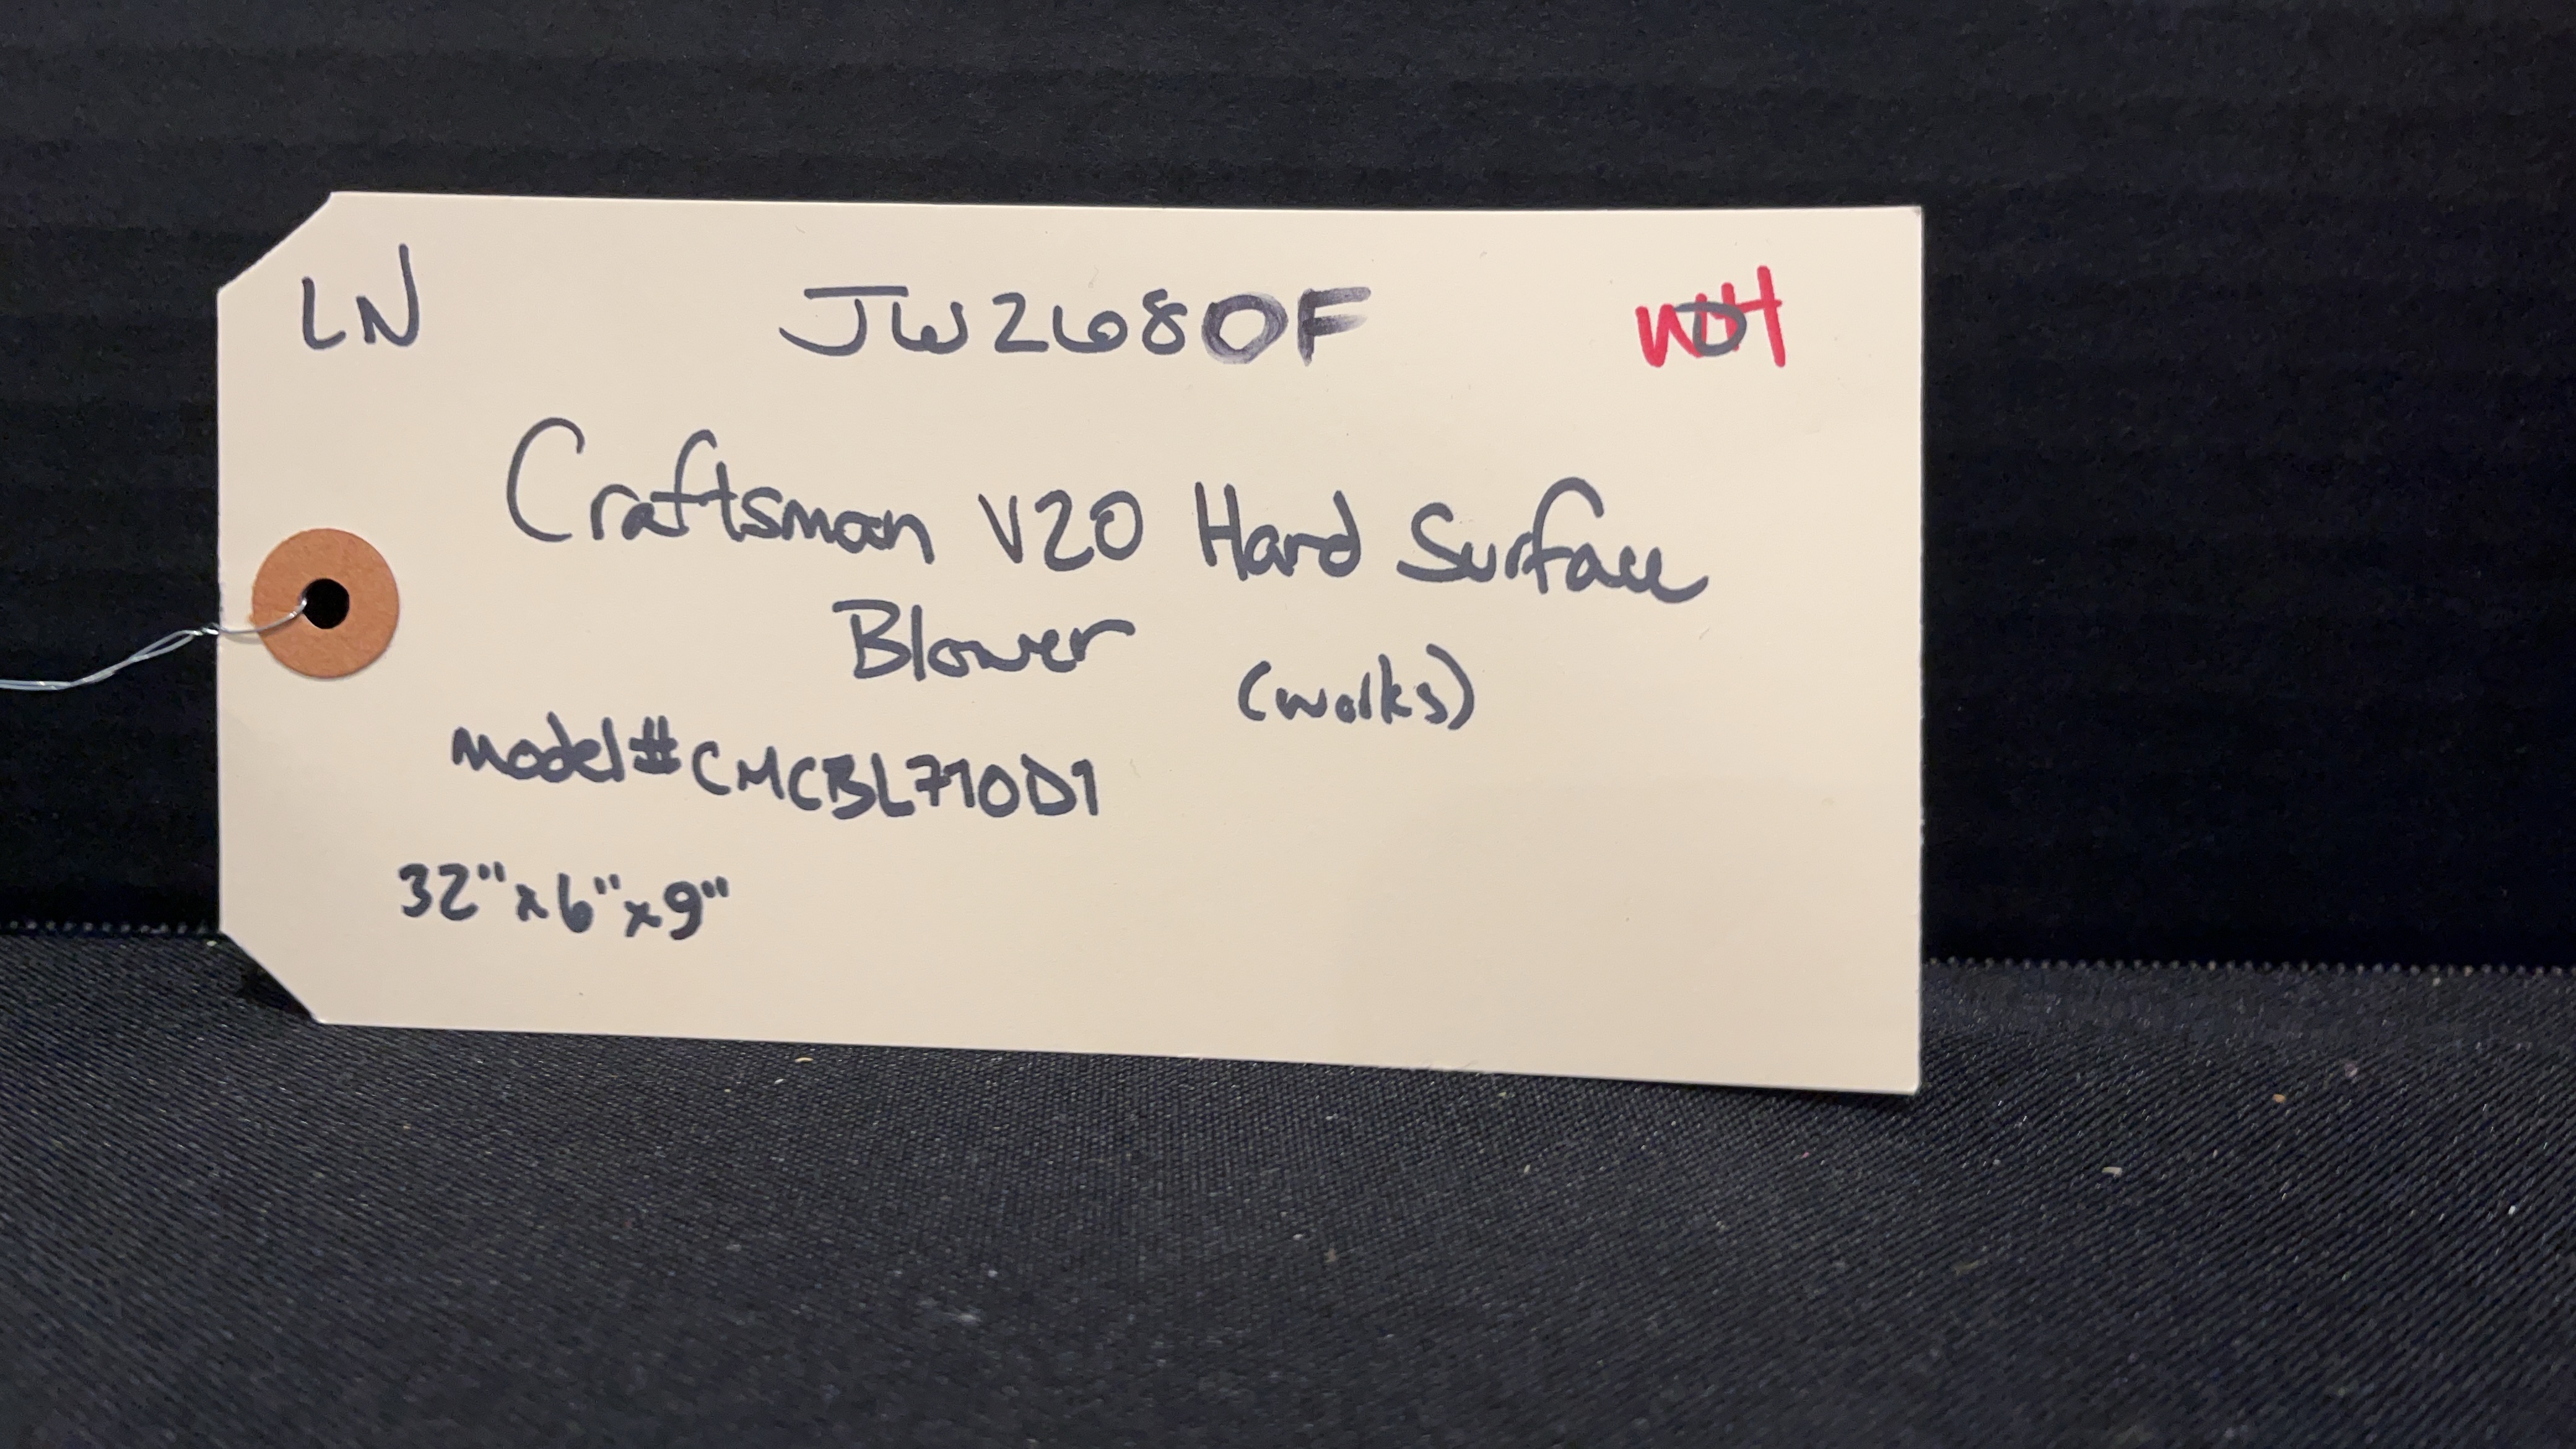 LN JW2680F
Craftsman V20 Hard Surface
Blower (works)
model# CMCBL710D1
32" x 6" x 9"